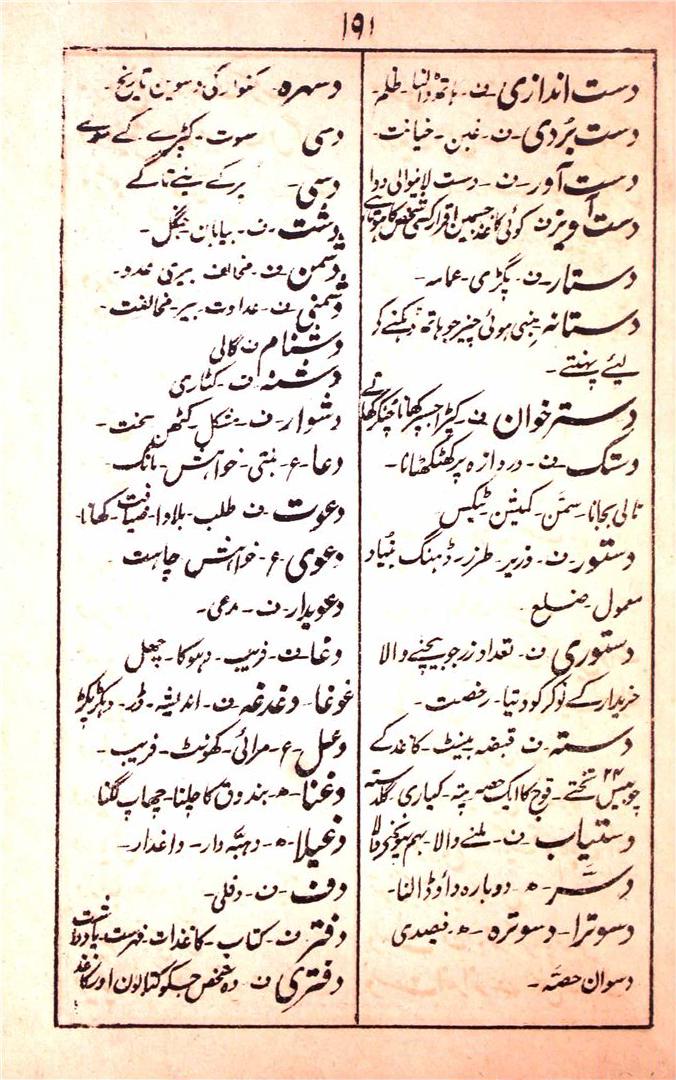 ۱۹۱
دست اندازی ۔ ف ۔ ہاتھ ڈالنا ۔ ظلم ۔
دست بُردی ۔ ف ۔ غبن ۔ خیانت ۔
دست آور ۔ ف ۔ دست لانیوالی دوا
دست آویز ف کوئی کاغذ جسمین اقرار کسی شخص کا ہوتا ہے
دستار ۔ ف ۔ پگڑی ۔ عمامہ ۔
دستانہ بنی ہوئی چیز جو ہاتھ ڈہکنے کے
لیئے پہنتے ۔
دسترخوان ف ۔ کپڑا جسپر کھانا چنکر کھاتے
دستک ۔ ف ۔ دروازہ پر کھٹکھٹانا ۔
تالی بجانا ۔ سمن ۔ کمیشن ٹیکس
دستور ۔ ف ۔ وزیر ۔ طرز ۔ ڈہنگ بُنیاد
معمول ۔ ضلع ۔
دستوری ف ۔ تعداد زر جو بیچنے والا
خریدار کے نوکر کو دیتا ۔ رخصت ۔
دستہ ۔ ف قبضہ بینٹ ۔ کاغذ کے
چوبیس ۲۴ تختے ۔ فوج کا ایک حصہ پتہ ۔ کیاری ۔ گلدستہ
دستیاب ۔ ف ۔ ملنے والا ۔ بہم پہونچنے والا
دسَّر ۔ ھ ۔ دوبارہ داؤ ڈالنا ۔
دسوترا ۔ دسوترہ ۔ ھ ۔ فیصدی
دسوان حصہ ۔
دسہرہ ۔ کنوار کی دسوین تاریخ ۔
دسی سوت ۔ کپڑے کے
دسی ۔ کے بنے تاگے
دشت ۔ ف ۔ بیابان جنگل ۔
دشمن ۔ ف ۔ مخالف بیری عدو ۔
دشمنی ۔ ف ۔ عداوت ۔ بیر ۔ مخالفت ۔
دشنام ف گالی
دشنہ ف ۔ کٹاری
دشوار ۔ ف ۔ مشکل ۔ کٹھن سخت ۔
دعا ۔ ع ۔ بنتی ۔ خواہش ۔ مانگ ۔
دعوت ۔ ف طلب ۔ بلاوا ۔ ضیافت ۔ کھانا ۔
دعوی ع ۔ خواہش چاہت
دعویدار ۔ ف ۔ مدعی ۔
دغا ۔ ف ۔ فریب ۔ دہوکا ۔ چھل
غوغا ۔ دغدغہ ۔ ف ۔ اندیشہ ۔ ڈر ۔
دغل ۔ ع ۔ مرائی ۔ کھونٹ ۔ فریب ۔
دغنا ۔ ھ ۔ بندوق کا چلنا ۔ چھاپ لگنا
دغیلا ۔ ھ ۔ دہبَّہ دار ۔ داغدار ۔
دف ۔ ف ۔ دفلی ۔
دفتر ف ۔ کتاب ۔ کاغذات ۔ فہرست ۔ یادداشت
دفتری ف ۔ وہ شخص جسکو کتابون اور کاغذ